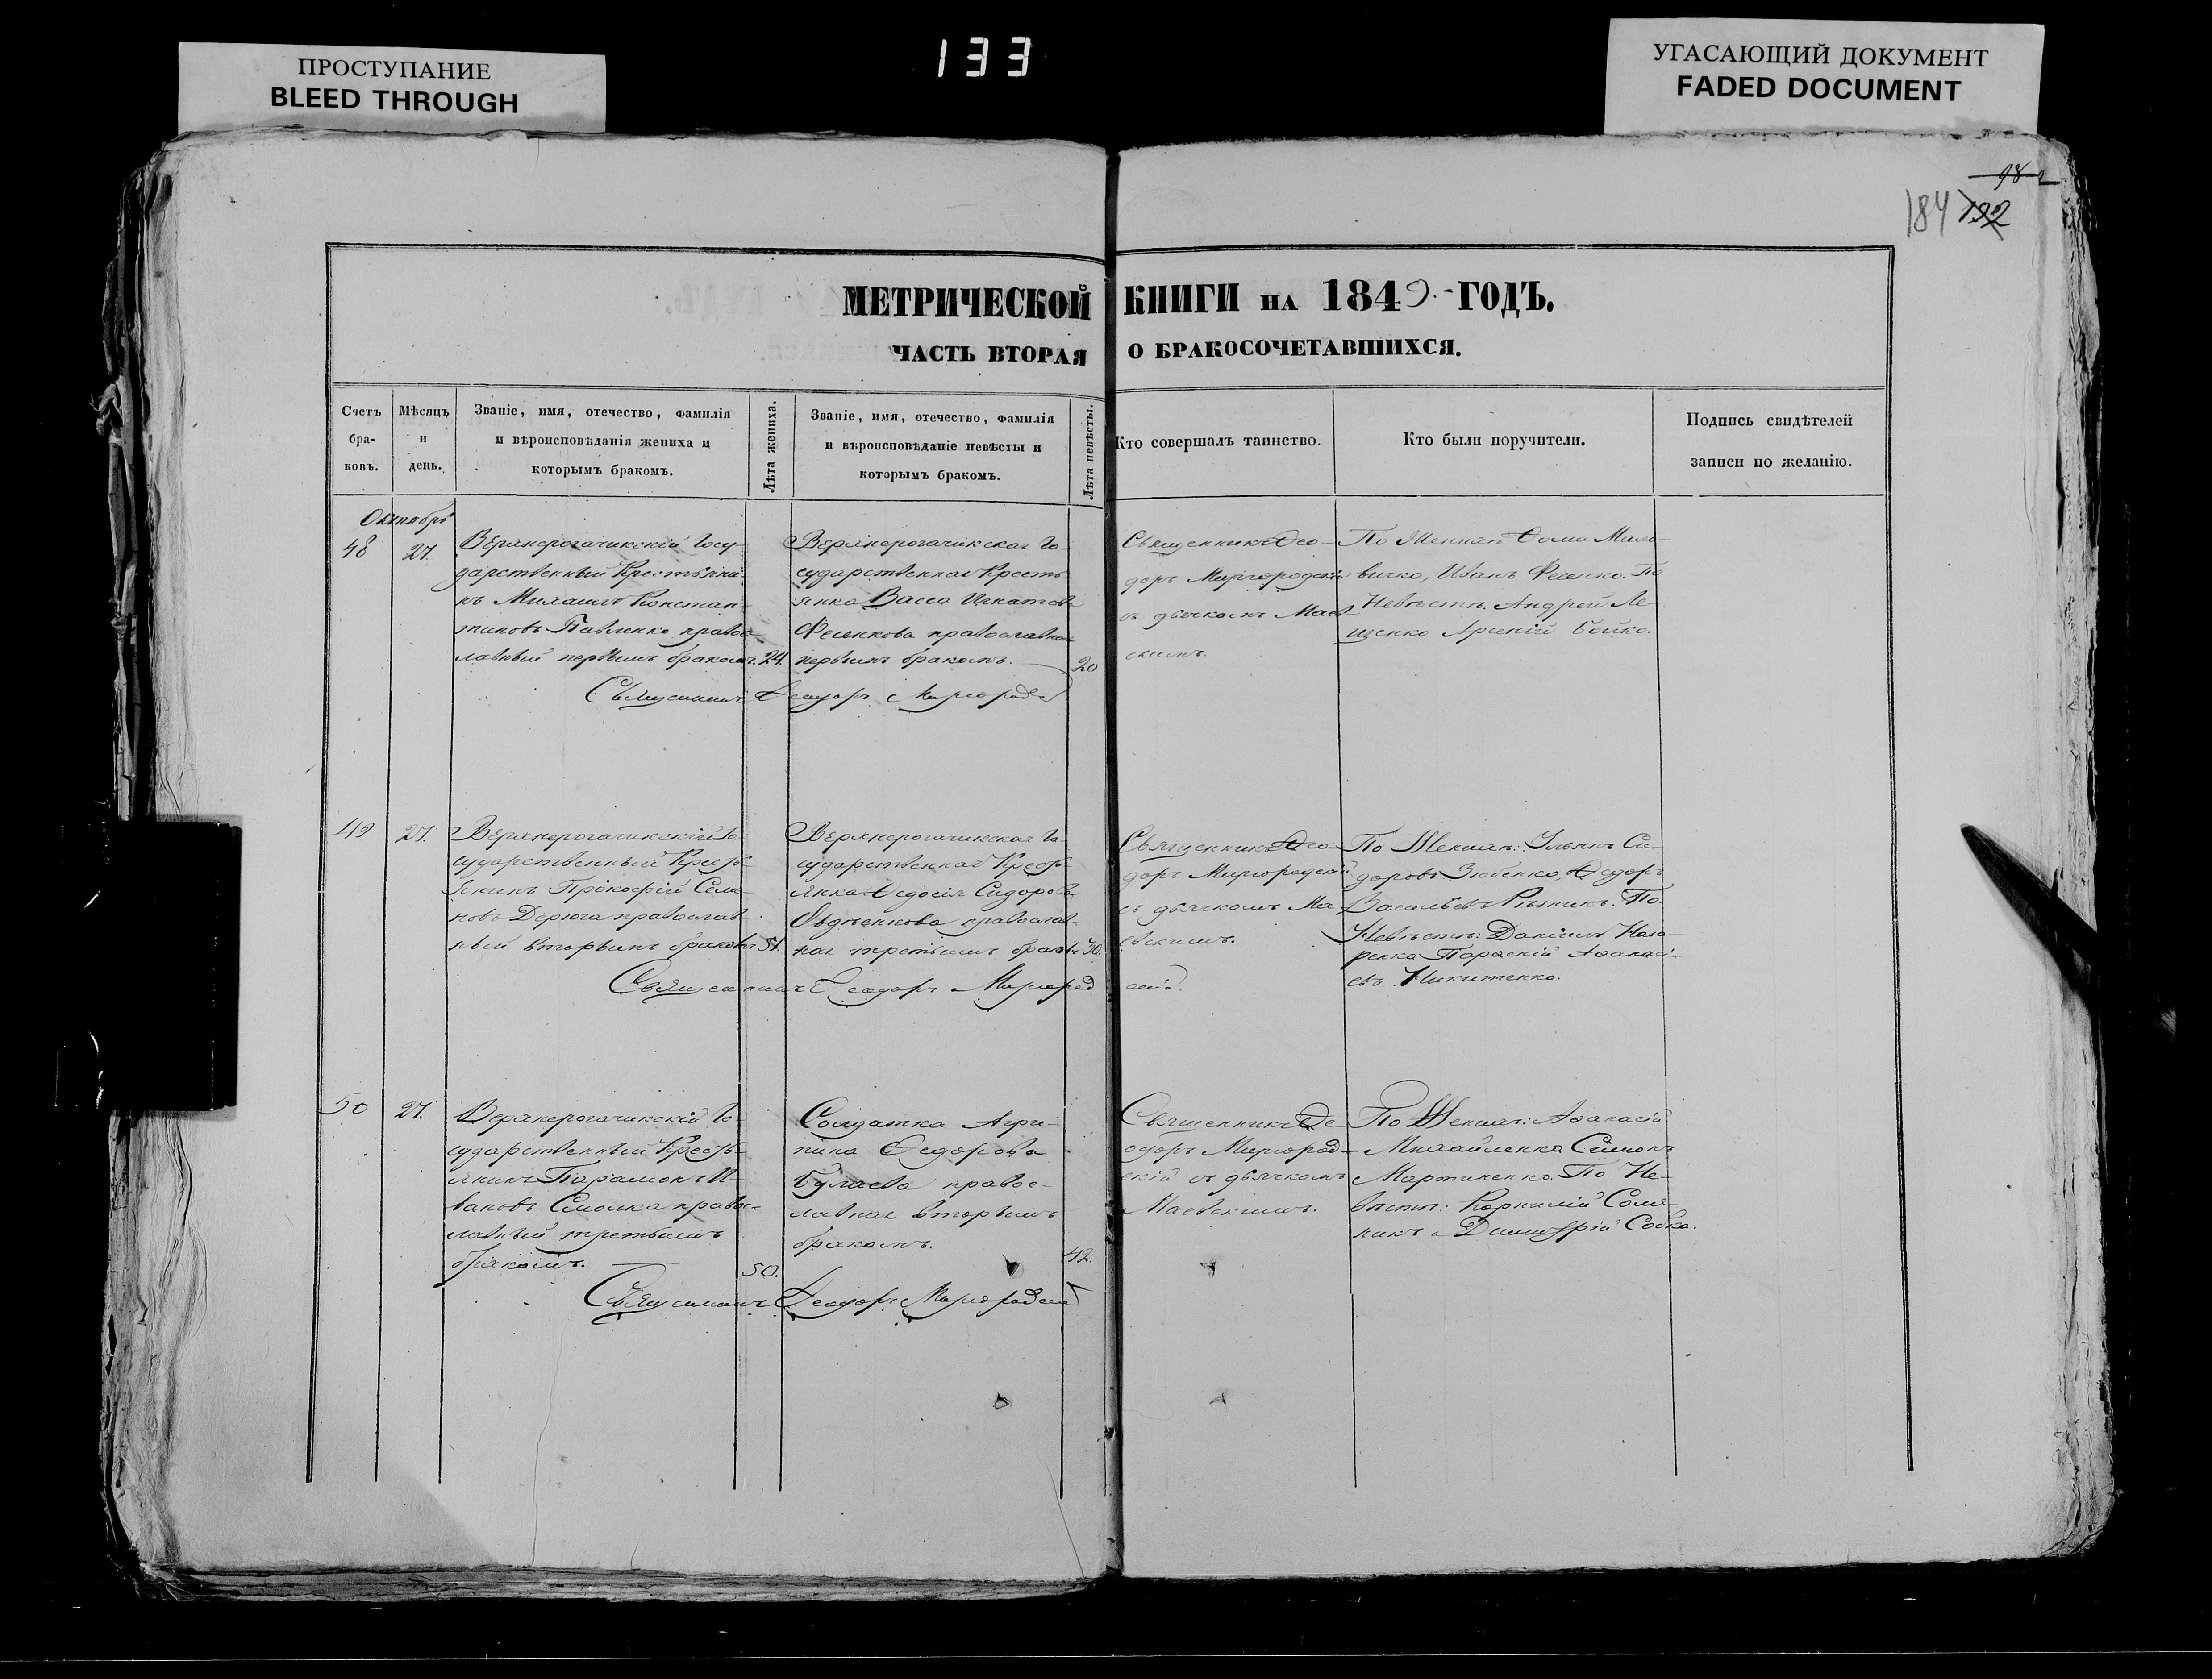 ПРОСТУПАНИЕ
BLEED THROUGH
133
УГАСАЮЩИЙ ДОКУМЕНТ
FADED DOCUMENT
184 192
МЕТРИЧЕСКОЙ КНИГИ НА 1849 ГОДЪ.
ЧАСТЬ ВТОРАЯ О БРАКОСОЧЕТАВШИХСЯ.
Счетъ
бра-
ковъ.
Мѣсяцъ
и
день.
Званіе, имя, отечество, фамилія
и вѣроисповѣданія жениха и
которымъ бракомъ.
Лѣта жениха.
Званіе, имя, отечество, фамилія
и вѣроисповѣданіе невѣсты и
которымъ бракомъ.
Лѣта невѣсты.
Кто совершалъ таинство.
Кто были поручители.
Подпись свидѣтелей
записи по желанію.
Октябрь
48
27.
Верхнерогачикскій Госу-
дарственный Крестьяни-
нъ Михаилъ Констан-
тиновъ Павленко правос-
лавный первымъ бракомъ.
24.
Верхнерогачикская Го-
сударственная Кресть-
янка Васса Игнатова
Фесенкова православная
первымъ бракомъ.
20
Священникъ Ѳео-
доръ Миргородскій
съ дьячкомъ Маев-
скимъ.
По Женихѣ Ѳома
Иванъ Фесенко. По
Невѣстѣ. Андрей Ле-
щенко Бойко.
Священникъ Ѳеодоръ Миргородскій
49
27.
Верхнерогачикскій Го-
сударственный Кресть-
янинъ Прокофій Семе-
новъ Дерюга православ-
ный вторымъ бракомъ
51.
Верхнерогачикская Го-
сударственная Кресть-
янка Ѳедосія Сидорова
православ-
ная третьимъ бракомъ
30.
Священникъ Ѳео-
доръ Миргородскій
съ дьячкомъ Ма-
евскимъ.
По Женихѣ: Си-
доровъ Зюбенко, Ѳедоръ
Васильевъ По
Невѣстѣ: Даніилъ Наза-
ренко Аѳанасі-
евъ Никитенко.
Священникъ Ѳеодоръ Миргородскій
50
27.
Верхнерогачикскій Го-
сударственный Кресть-
янинъ Парамонъ И-
вановъ Смолка правос-
лавный третьимъ
бракомъ.
50.
Солдатка Агри-
пина Ѳедорова
Булаева правос-
лавная вторымъ
бракомъ.
42.
Священникъ Ѳе-
одоръ Миргород-
скій съ дьячкомъ
Маевскимъ.
По Женихѣ: Аѳанасій
Михайленко Симонъ
Мартиненко. По Не-
вѣстѣ: Корнилій
Димитрій Собко.
Священникъ Ѳеодоръ Миргородскій